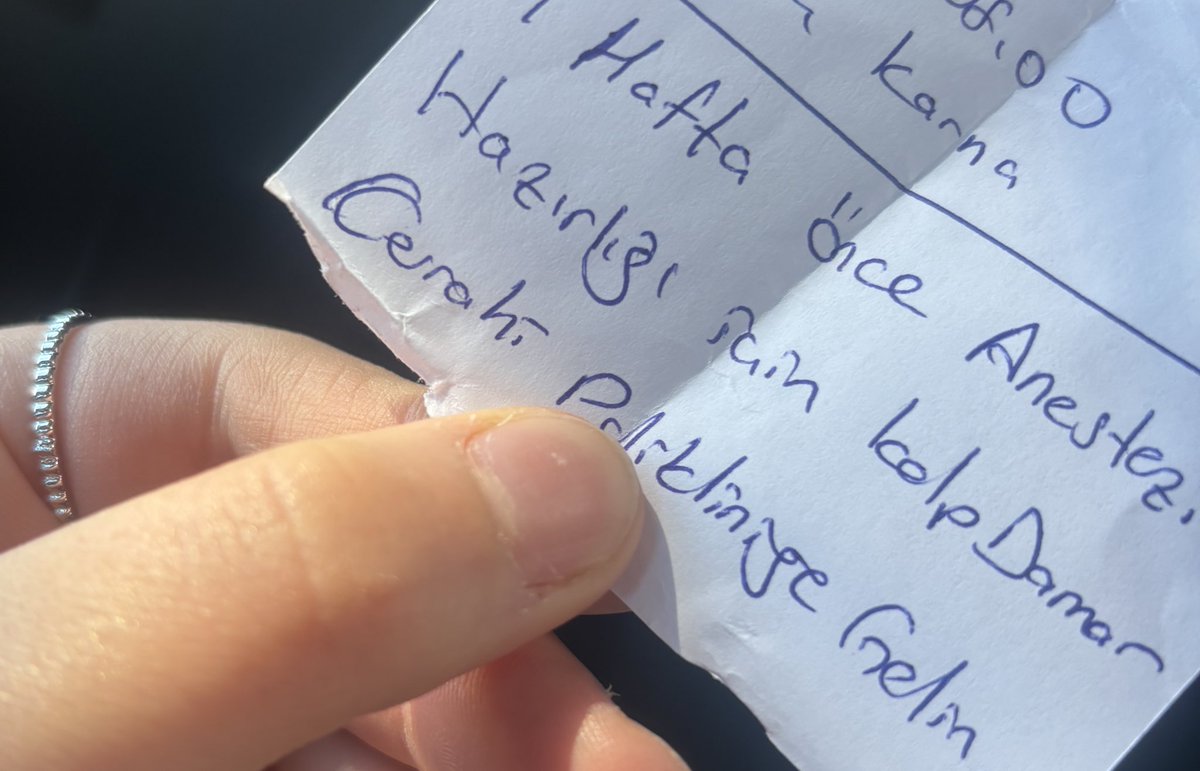 karna
1 Hafta önce Anestezi
Hazırlığı için kalp Damar
Cerrahi Polikliniğe Gelin